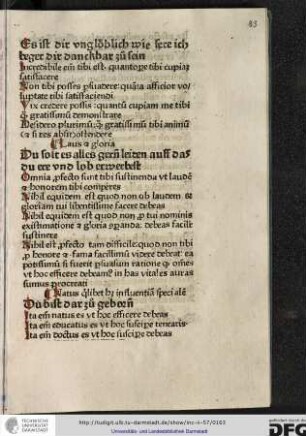 85
Es ist dir vnglöblich wie sere ich
beger dir danckbar zů sein
Incredibile em̄ tibi est quantope tibi cupiaꝫ
satisfacere
Non tibi posses psuadere quāta afficior vo/
luptate tibi satisfaciendi
Vix credere possis quantū cupiam me tibi
gratissimū demonstrare
Desidero plurimū gratissimū tibi animū
ostendere
Laus et gloria
Du solt es alles gern leiden auff das
du ere vnd lob erwerbest
Omnia ꝓfecto sunt tibi sustinenda vt laudē
et honorem tibi compares
Nihil equidem est quod non ob laudem et
gloriam tui libentissime facere debeas
Nihil equidem est quod non ꝓ tui nominis
existimatione et gloria debeas facile
sustinere
Nihil est ꝓfecto tam difficile quod non tibi
ꝓ honore et fama facillimū videre debeat
potissimū si fuerit psuasum ratione
vt hoc efficere debeam in has vitales auras
sumus procreati
Natus habet influentiā speciale
Du bist dar zů geborn
Ita em̄ natus es vt hoc efficere debeas
Ita em̄ educatus es vt hoc suscipe tenearis
Ita em̄ doctus es vt hoc suscipe debeas
TECHNISCHE
UNIVERSITÄT
DARMSTADT
http://tudigit.ulb.tu-darmstadt.de/show/inc-ii-57/0163
Universitäts- und Landesbibliothek Darmstadt
gefördert durch die
DFG